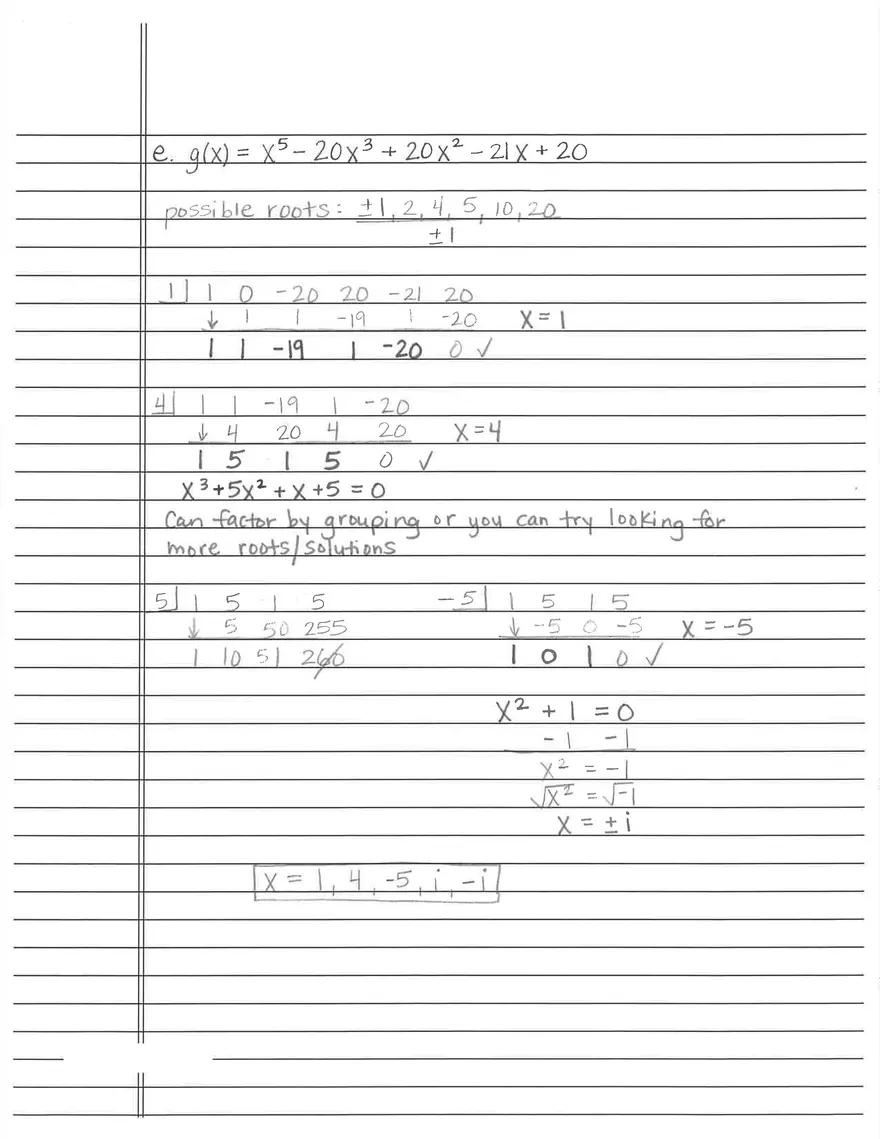 e. g(x) = x⁵ - 20x³ + 20x² - 21x + 20
possible roots: ±1, 2, 4, 5, 10, 20
±1
1| 1 0 -20 20 -21 20
↓ 1 1 -19 1 -20 x = 1
1 1 -19 1 -20 0 ✓
4| 1 1 -19 1 -20
↓ 4 20 4 20 x=4
1 5 1 5 0 ✓
x³+5x² + x +5 = 0
Can factor by grouping or you can try looking for
more roots/solutions
5| 1 5 1 5
↓ 5 50 255
1 10 51 260
-5| 1 5 1 5
↓ -5 0 -5 x = -5
1 0 1 0 ✓
x² + 1 = 0
-1 -1
x² = -1
√x² = √-1
x = ± i
x = 1, 4, -5, i, -i